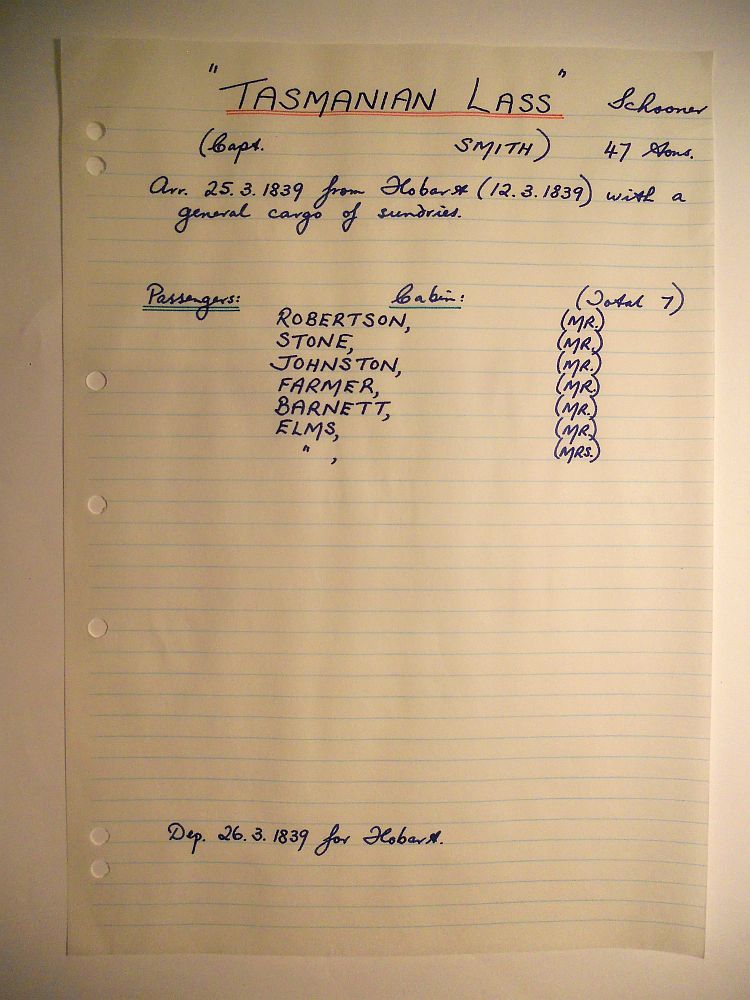 "TASMANIAN LASS" Schooner
(Capt. SMITH) 47 tons.
Arr. 25.3.1839 from Hobart (12.3.1839) with a
general cargo of sundries.
Passengers: Cabin: (Total 7)
ROBERTSON, (MR.)
STONE, (MR.)
JOHNSTON, (MR.)
FARMER, (MR.)
BARNETT, (MR.)
ELMS, (MR.)
" , (MRS.)
Dep. 26.3.1839 for Hobart.